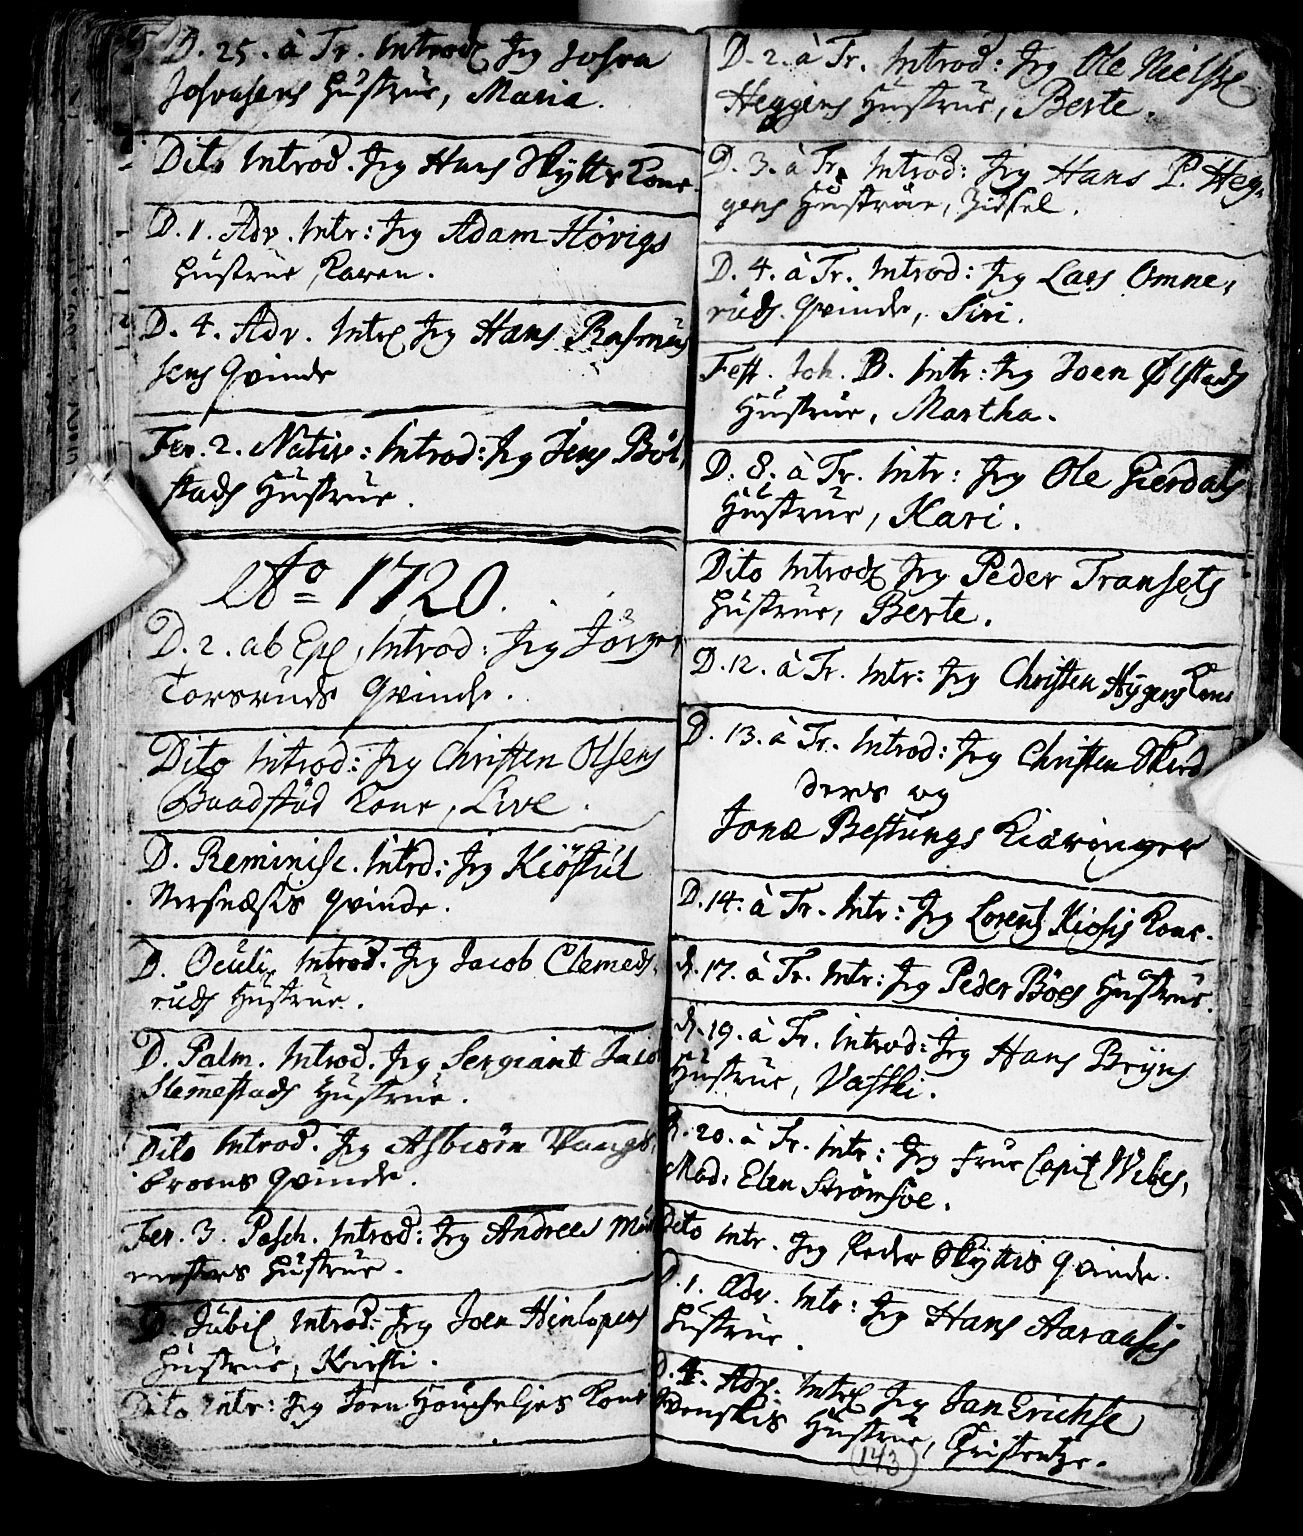 D. 25. à Tr. Introd. Jeg Josva
Josvasens Hustrue, Maria.
Dito Introd. Jeg Hans Skytts Kone.
D. 1. Adv. Intr: Jeg Adam Hövigs
Hustrue Karen.
D. 4. Adv. Intr. Jeg Hans Rasmus
sens Qvinde
Fer. 2. Nativ: Introd: Jeg Jens Böl,
stads Hustrue.
Ao 1720.
D. 2. ab Eph. Introd: Jeg Jörgen
Torsruds Qvinde.
Dito Introd: Jeg Christen Olsens
Baadstöd Kone, Live.
D. Reminisc. Introd: Jeg Kiöstul
Nersnæsis Qvinde.
D. Oculi, Introd. Jeg Jacob Clemeds,
ruds Hustrue.
D. Palm. Introd. Jeg Sergiant
Slemestads Hustrue.
Dito Introd. Jeg Asbiörn Vangs,
broens Qvinde.
Fer. 3. Pasch. Introd: Jeg Andreas Mur
mesters Hustrue.
D. Jubil. Introd: Jeg Joen Hinlopens
Hustrue, Kristi.
Dito Intr: Jeg Joen Kone
D. 2. à Tr. Introd: Jeg Ole Nielse
Heggens Hustrue, Berte.
D. 3. à Tr. Introd: Jeg Hans P. Heg,
gens Hustrue, Zidsel.
D. 4. à Tr. Introd: Jeg Lars Omne,
ruds Qvinde, Siri.
Fest. Joh. B. Intr: Jeg Joen Ølstads
Hustrue, Martha.
D. 8. à Tr. Intr: Jeg Ole Gierdals
Hustrue, Kari.
Dito Introd. Jeg Peder Transets
Hustrue, Berte.
D. 12. à Tr. Intr: Jeg Christen Hygens Kone
D. 13. à Tr. Introd: Jeg Christen Skred
ders og
Jonæ Bestungs Kiæringer
D. 14. à Tr. Intr: Jeg Lorens Kiosis Kone.
D. 17. à Tr. Intr: Jeg Peder Böes Hustrue.
D. 19. à Tr. Introd: Jeg Hans Bryns
Hustrue, Vasthi.
D. 20. à Tr. Intr: Jeg Frue Capit. Wibes,
Mad: Elen Strömsöe.
Dito Intr. Jeg Peder Skyttis Qvinde.
D. 1. Adv. Intr: Jeg Hans Aaraasis
Hustrue.
D. 4. Adv. Intr. Jeg Jan Erichse
Svenskis Hustrue, Christentze.
143